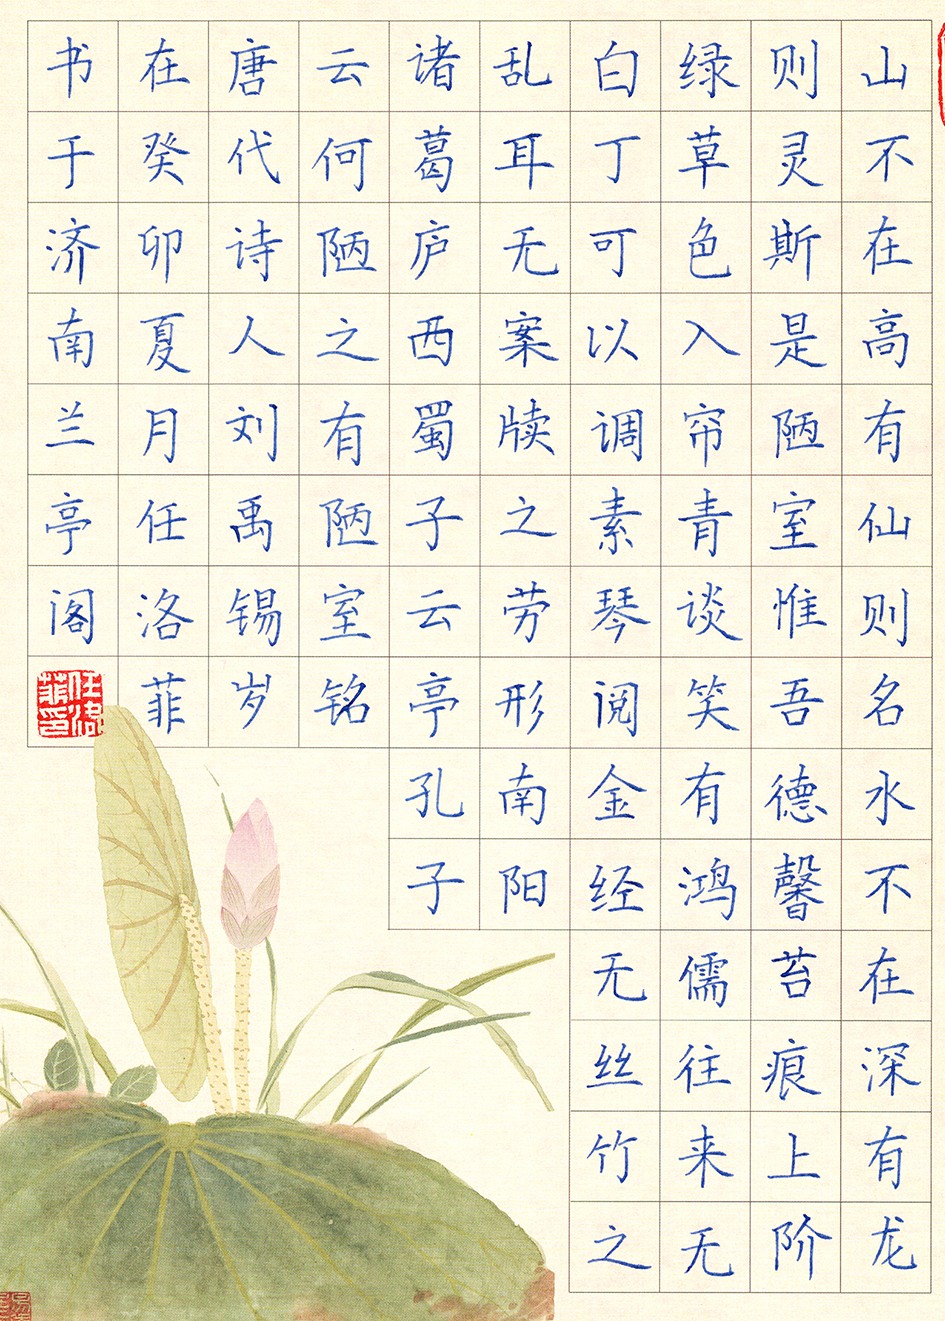 山不在高有仙则名水不在深有龙
则灵斯是陋室惟吾德馨苔痕上阶
绿草色入帘青谈笑有鸿儒往来无
白丁可以调素琴阅金经无丝竹之
乱耳无案牍之劳形南阳
诸葛庐西蜀子云亭孔子
云何陋之有陋室铭
唐代诗人刘禹锡岁
在癸卯夏月任洛菲
书于济南兰亭阁
任洛菲印